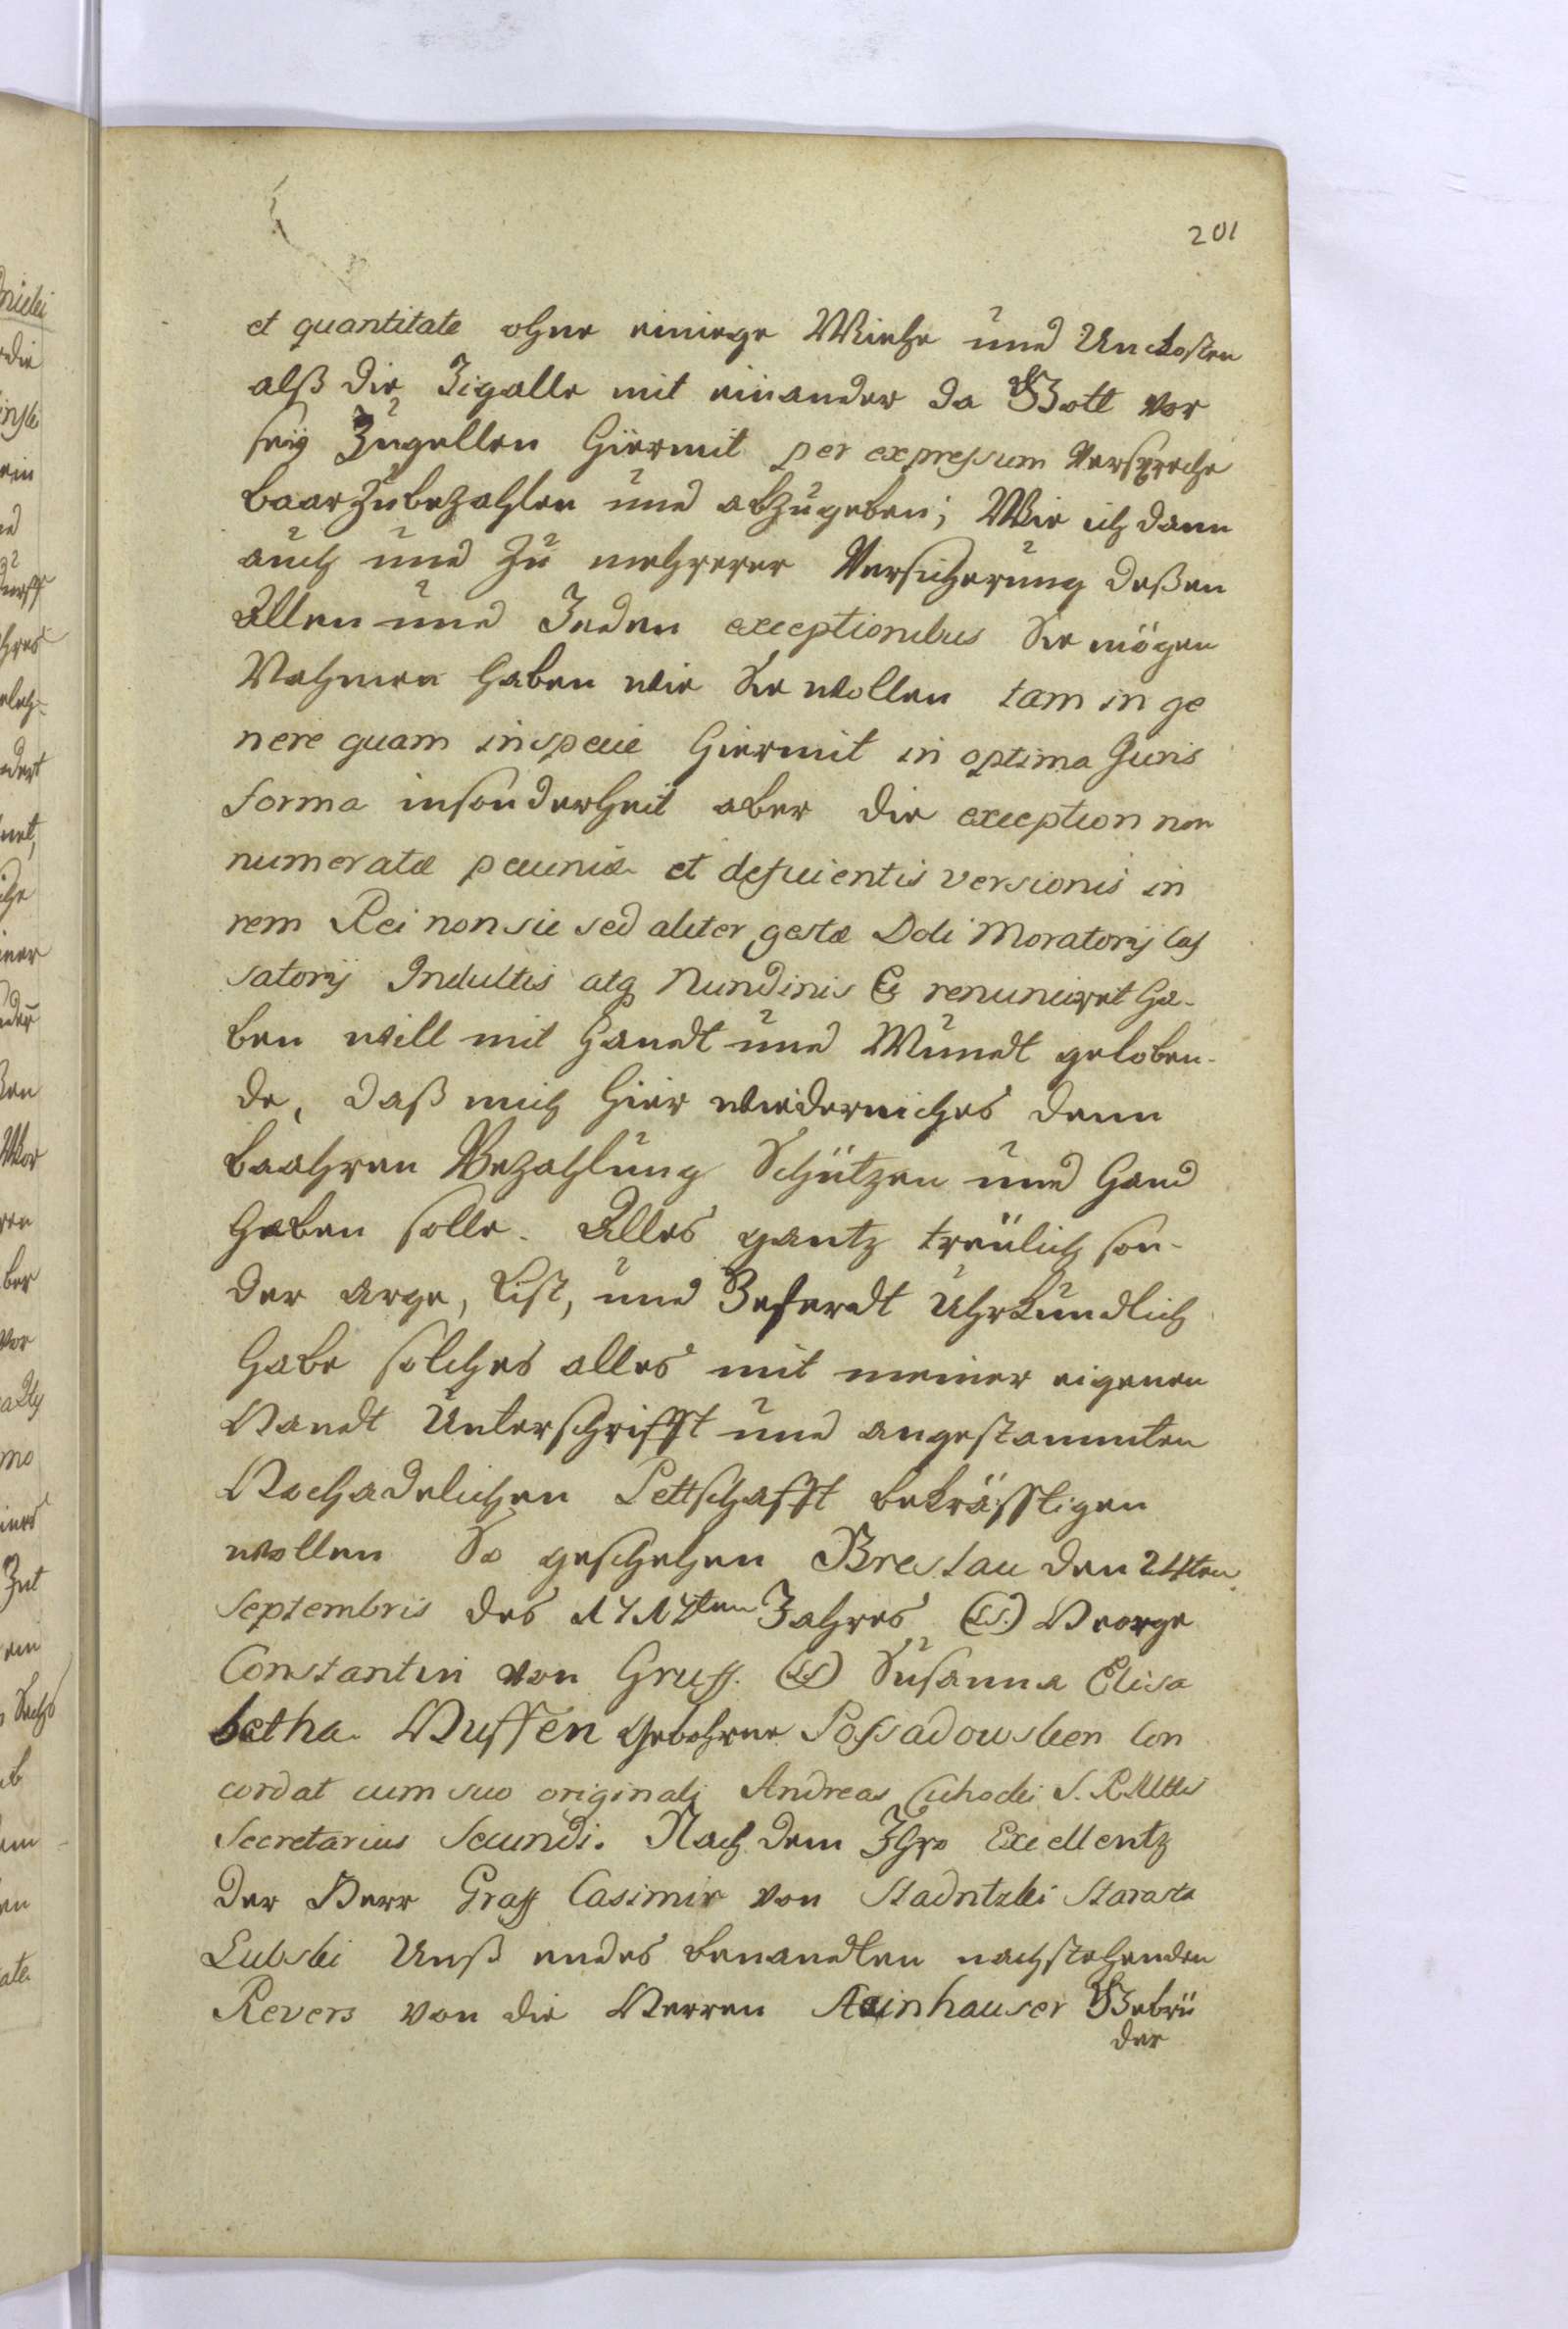 201
et quantitate ohne einiege Miehe und Unckosten
alß die Zigalle mit einander da Gott vor
seÿ Zugellen hiermit per expressum Verspreche
baar zubezahlen und abzugeben; Wie ich dann
auch und zu mehrerer Versicherung deßen
Allen und Jeden exceptionibus Sie mögen
Nahmen haben wie Sie wollen tam in ge
nere quam in specie hiermit in optima Juris
forma insonderheit aber die exception non
numeratæ pecuniæ et deficientis versionis in
rem Rei non sic sed aliter gestæ Doli Moratorij Cas
satorij Indultis atq Nundinis & renunciret ha-
ben will mit Handt und Mundt geloben-
de, daß mich hier wiedernichts denn
baahren Bezahlung Schützen und Hand
haben solle. Alles gantz treülich son-
der arge, List, und Gefardt Uhrkundlich
habe solches alles mit meiner eigenen
Handt Unterschrifft und angestammten
Hochadelichen Pettschafft bekräfftigen
wollen So geschehen Breslau den 24ten
Septembris des 1717ten Jahres (LS.) George
Constantin von Gruff. (LS) Susanna Elisa
betha. Nuffen Gebohrne Possadowsken Con
cordat cum suo originali Andreas Cichocki S. R. Mttis
Secretarius Secundi. Nach dem Ihro Excellentz
der Herr Graff Casimir von Stadnitzki Starasta
Lubski Unß endes benandten nachstehenden
Revers von die Herren Stainhauser Gebrü
der